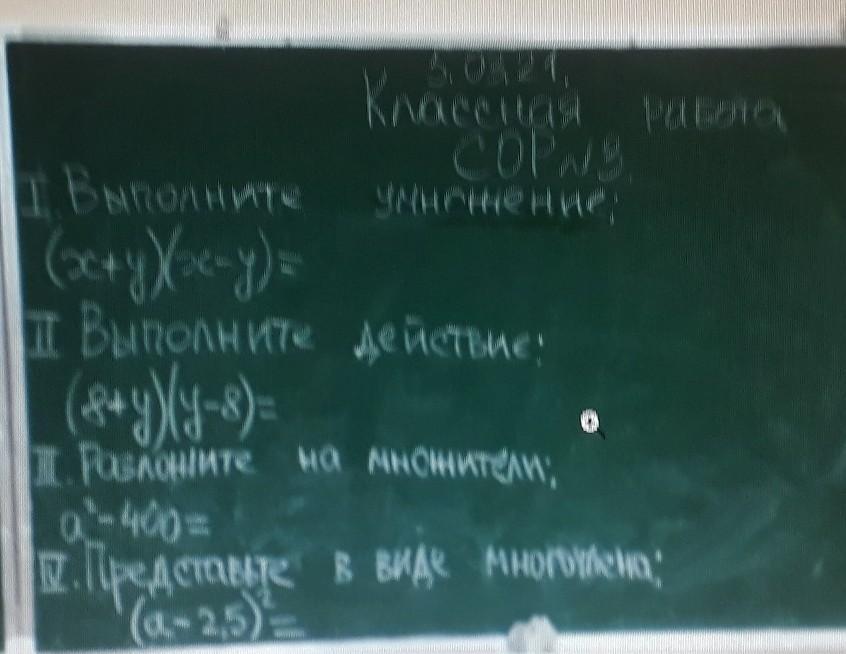 5.03.21.
Классная работа
СОР №3.
I. Выполните умножение:
(x+y)(x-y)=
II Выполните действие:
(8+y)(y-8)=
III. Разложите на множители:
a²-400=
IV. Представьте в виде многочлена:
(a-2,5)²=